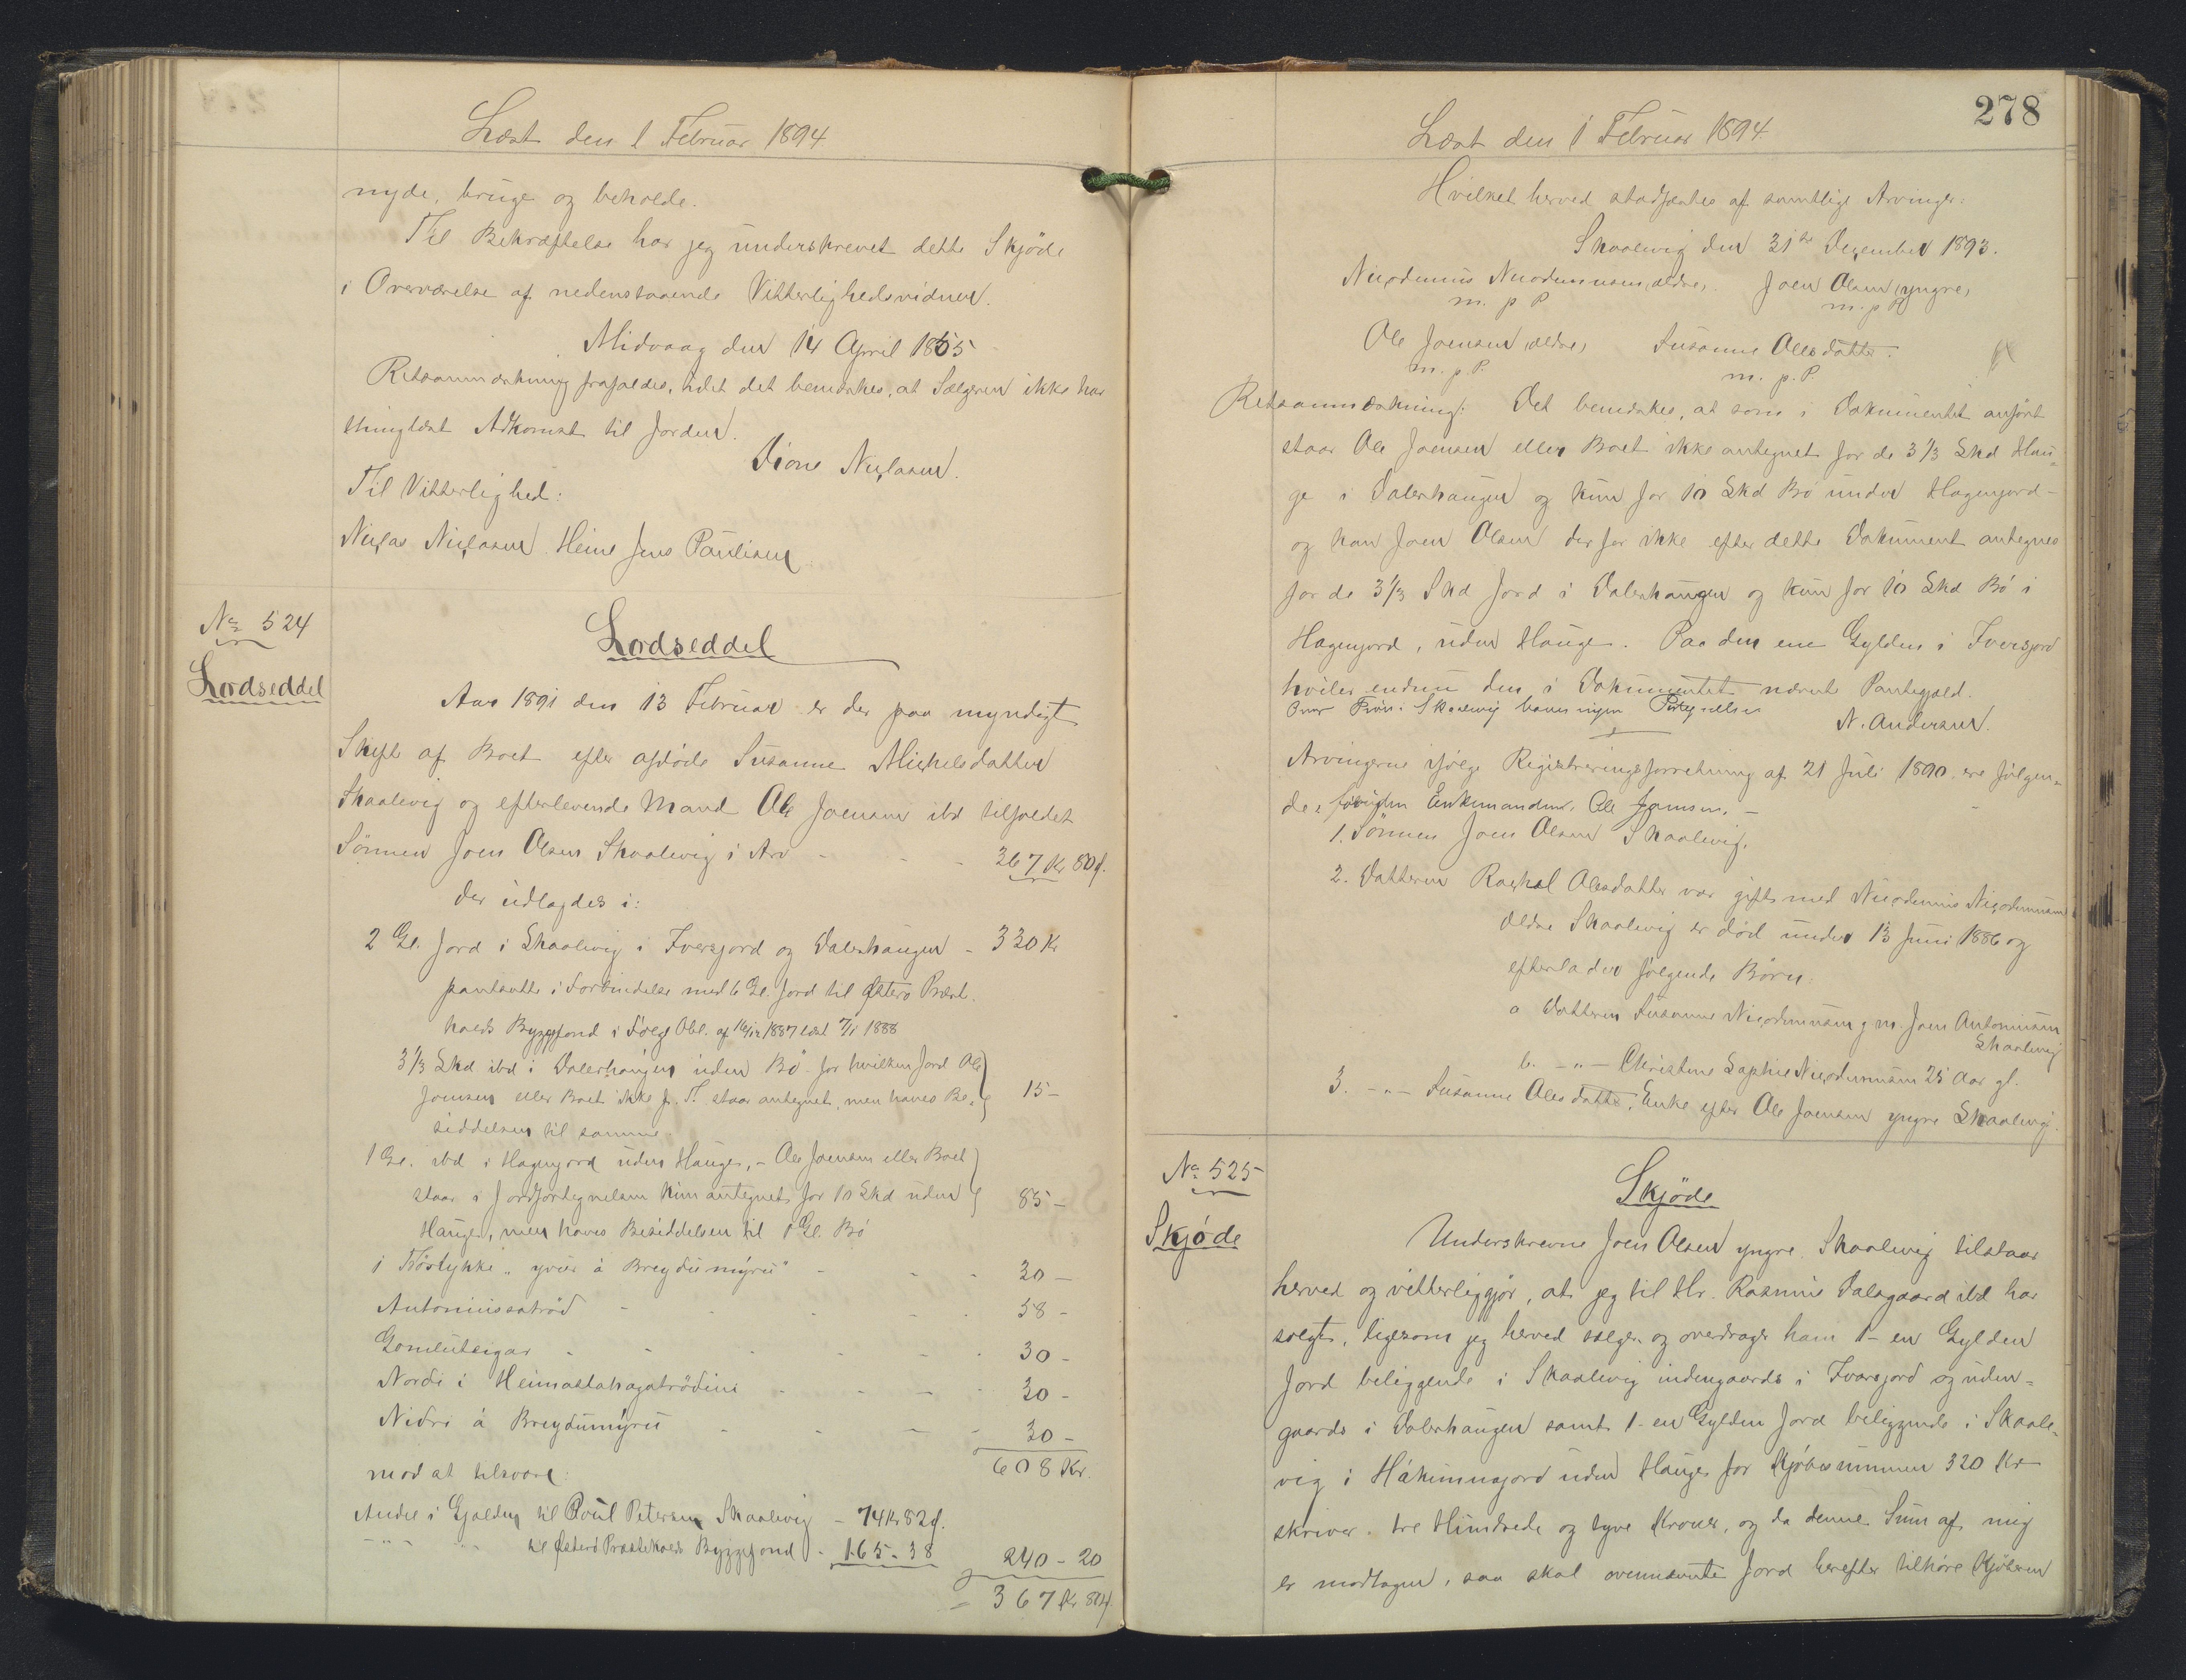 Læst den 1 Februar 1894
nyde, bruge og beholde.
Til Bekræftelse har jeg underskrevet dette Skjöde
i Overværelse af nedenstaaende Vitterlighedsvidner.
Midvaag den 14 April 1865
Retsanmærkning frafaldes, idet det bemærkes, at Sælgeren ikke har
thinglæst Adkomst til Jorden.
Dione Niclasen.
Til Vitterlighed:
Niclas Niclasen. Heine Jens Paulisen
No 524
Lodseddel
Lodseddel
Aar 1891 den 13 Februar er der paa myndigt
Skifte af Boet efter afdöde Susanne Michelsdatter
Skaalevig og efterlevende Mand Ole Joensen ibd tilfaldet
Sönnen Joen Olsen Skaalevig i Arv - - - 367 Kr 80 f.
der udlagdes i:
2 Gl. Jord i Skaalevig i Iversjord og Dalerhaugen - 330 Kr
pantsatte i Forbindelse med 6 Gl. Jord til Österö Præste-
kalds Byggefond i Fölge Obl. af 16/12 1887 læst 7/1 1888
3 1/3 Skd ibd i Dalerhaugen uden Bö - for hvilken Jord Ole
Joensen eller Boet ikke p. T. staar antegnet, men haves Be- 15 -
siddelsen til samme
1 Gl. ibd i Hagenjord uden Hauge, - Ole Joensen eller Boet
staar i Jordfortegnelsen kun antegnet for 10 Skd uden 85 -
Hauge, men haves Besiddelsen til 1 Gl. Bö
1 Tröstykki „ yvir á Breydumýru" - - - 30 -
Antoniussatröd - - - 58 -
Gomluteigar - - - - - 30 -
Nordi i Heimastahagatrödini - - - 30 -
Nidri á Breydumýru - - - 30 -
608 Kr.
mod at tilsvare:
Andel i Gjælden til Poul Petersen Skaalevig - 74 Kr 82 f.
- " - " til Österö Præstekalds Byggefond - 165 - 38 240 - 20
= 367 Kr 80 f.
278
Læst den 1 Februar 1894.
Hvilket herved stadfæstes af samtlige Arvinger:
Skaalevig den 31te Dezember 1893.
Nicodemus Nicodemussen, ældre, Joen Olsen, yngre,
m. p. P m. p P
Ole Joensen, ældre, Susanne Olesdatter.
m. p. P. m. p. P
Retsanmærkning: Det bemærkes, at som i Dokumentet anfört
staar Ole Joensen eller Boet ikke antegnet for de 3 1/3 Skd Hau-
ge i Dalerhaugen og kun for 10 Skd Bö under Hagenjord -
og kan Joen Olsen derfor ikke efter dette Dokument antegnes
for de 3 1/3 Skd Jord i Dalerhaugen og kun for 10 Skd Bö i
Hagenjord, uden Hauge. Paa den ene Gylden i Iversjord
hviler endnu den i Dokumentet nævnte Pantegjæld.
N. Andersen.
Arvingerne ifölge Registreringsforretning af 21 Juli 1890 ere fölgen-
de: foruden Enkemanden, Ole Joensen. -
1. Sönnen Joen Olsen Skaalevig.
2. Datteren Rachel Olesdatter var gift med Nicodemus Nicodemussen
ældre Skaalevig er död under 13 Juni 1886 og
efterlader fölgende Börn:
a Datteren Susanne Nicodemussen g. m. Joen Antoniussen
Skaalevig
b. - " - Christine Sophie Nicodemussen 25 Aar gl.
3. - " - Susanne Olesdatter, Enke efter Ole Joensen yngre Skaalevig.
No 525
Skjöde
Skjöde
Underskrevne Joen Olsen yngre, Skaalevig tilstaar
herved og vitterliggjör, at jeg til Hr. Rasmus Dalsgaard ibd har
solgt, ligesom jeg herved sælger og overdrager ham 1 - en Gylden
Jord beliggende i Skaalevig indengaards i Ivarsjord og uden-
gaards i Dalerhaugen samt 1 - en Gylden Jord beliggende i Skaale-
vig i Hákunnagjord uden Hauge for Kjöbesummen 320 Kr
skriver tre Hundrede og tyve Kroner, og da denne Sum af mig
er modtagen, saa skal ovennævnte Jord herefter tilhöre Kjöberen